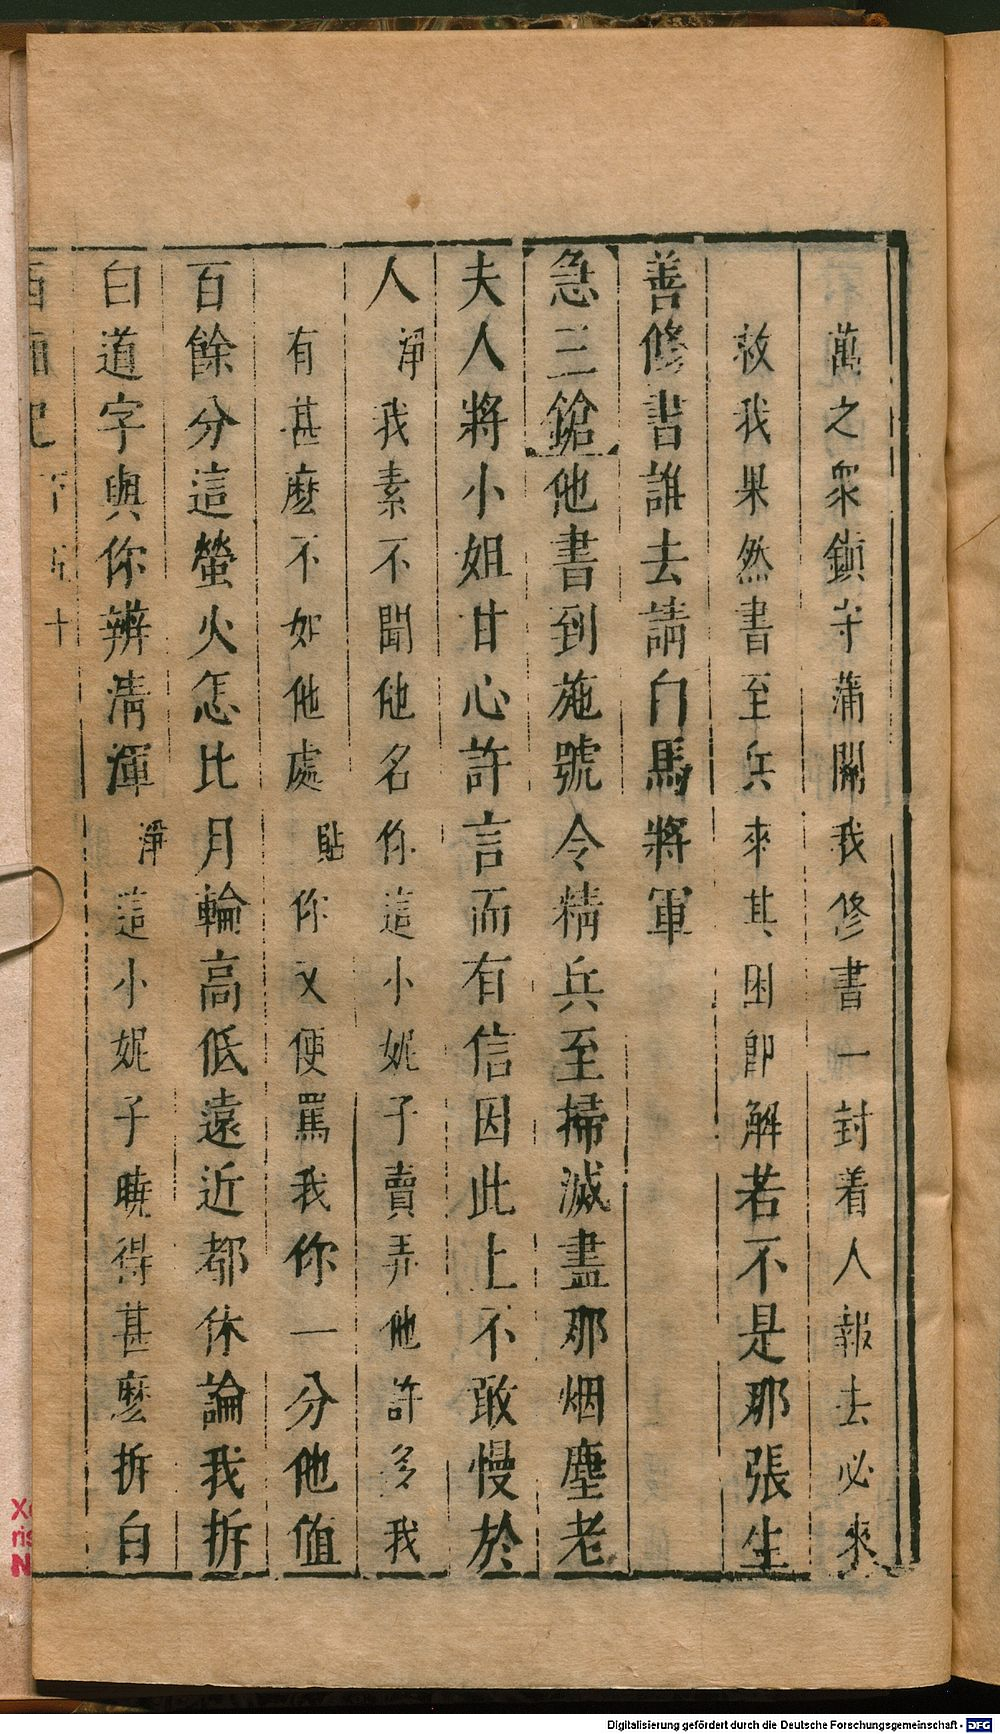 萬之衆鎭守蒲關我修書一封着人報去必來
救我果然書至兵來其困即解若不是那張生
善修書誰去請白馬將軍
急三鎗他書到施號令精兵至掃滅盡那烟塵老
夫人將小姐甘心許言而有信因此上不敢慢於
人淨我素不聞他名你這小妮子賣弄他許多我
有甚麽不如他處貼你又便罵我你一分他値
百餘分這螢火怎比月輪高低遠近都休論我拆
白道字與你辨淸渾淨這小妮子曉得甚麽拆白
西廂記下 十
Digitalisierung gefördert durch die Deutsche Forschungsgemeinschaft - DFG